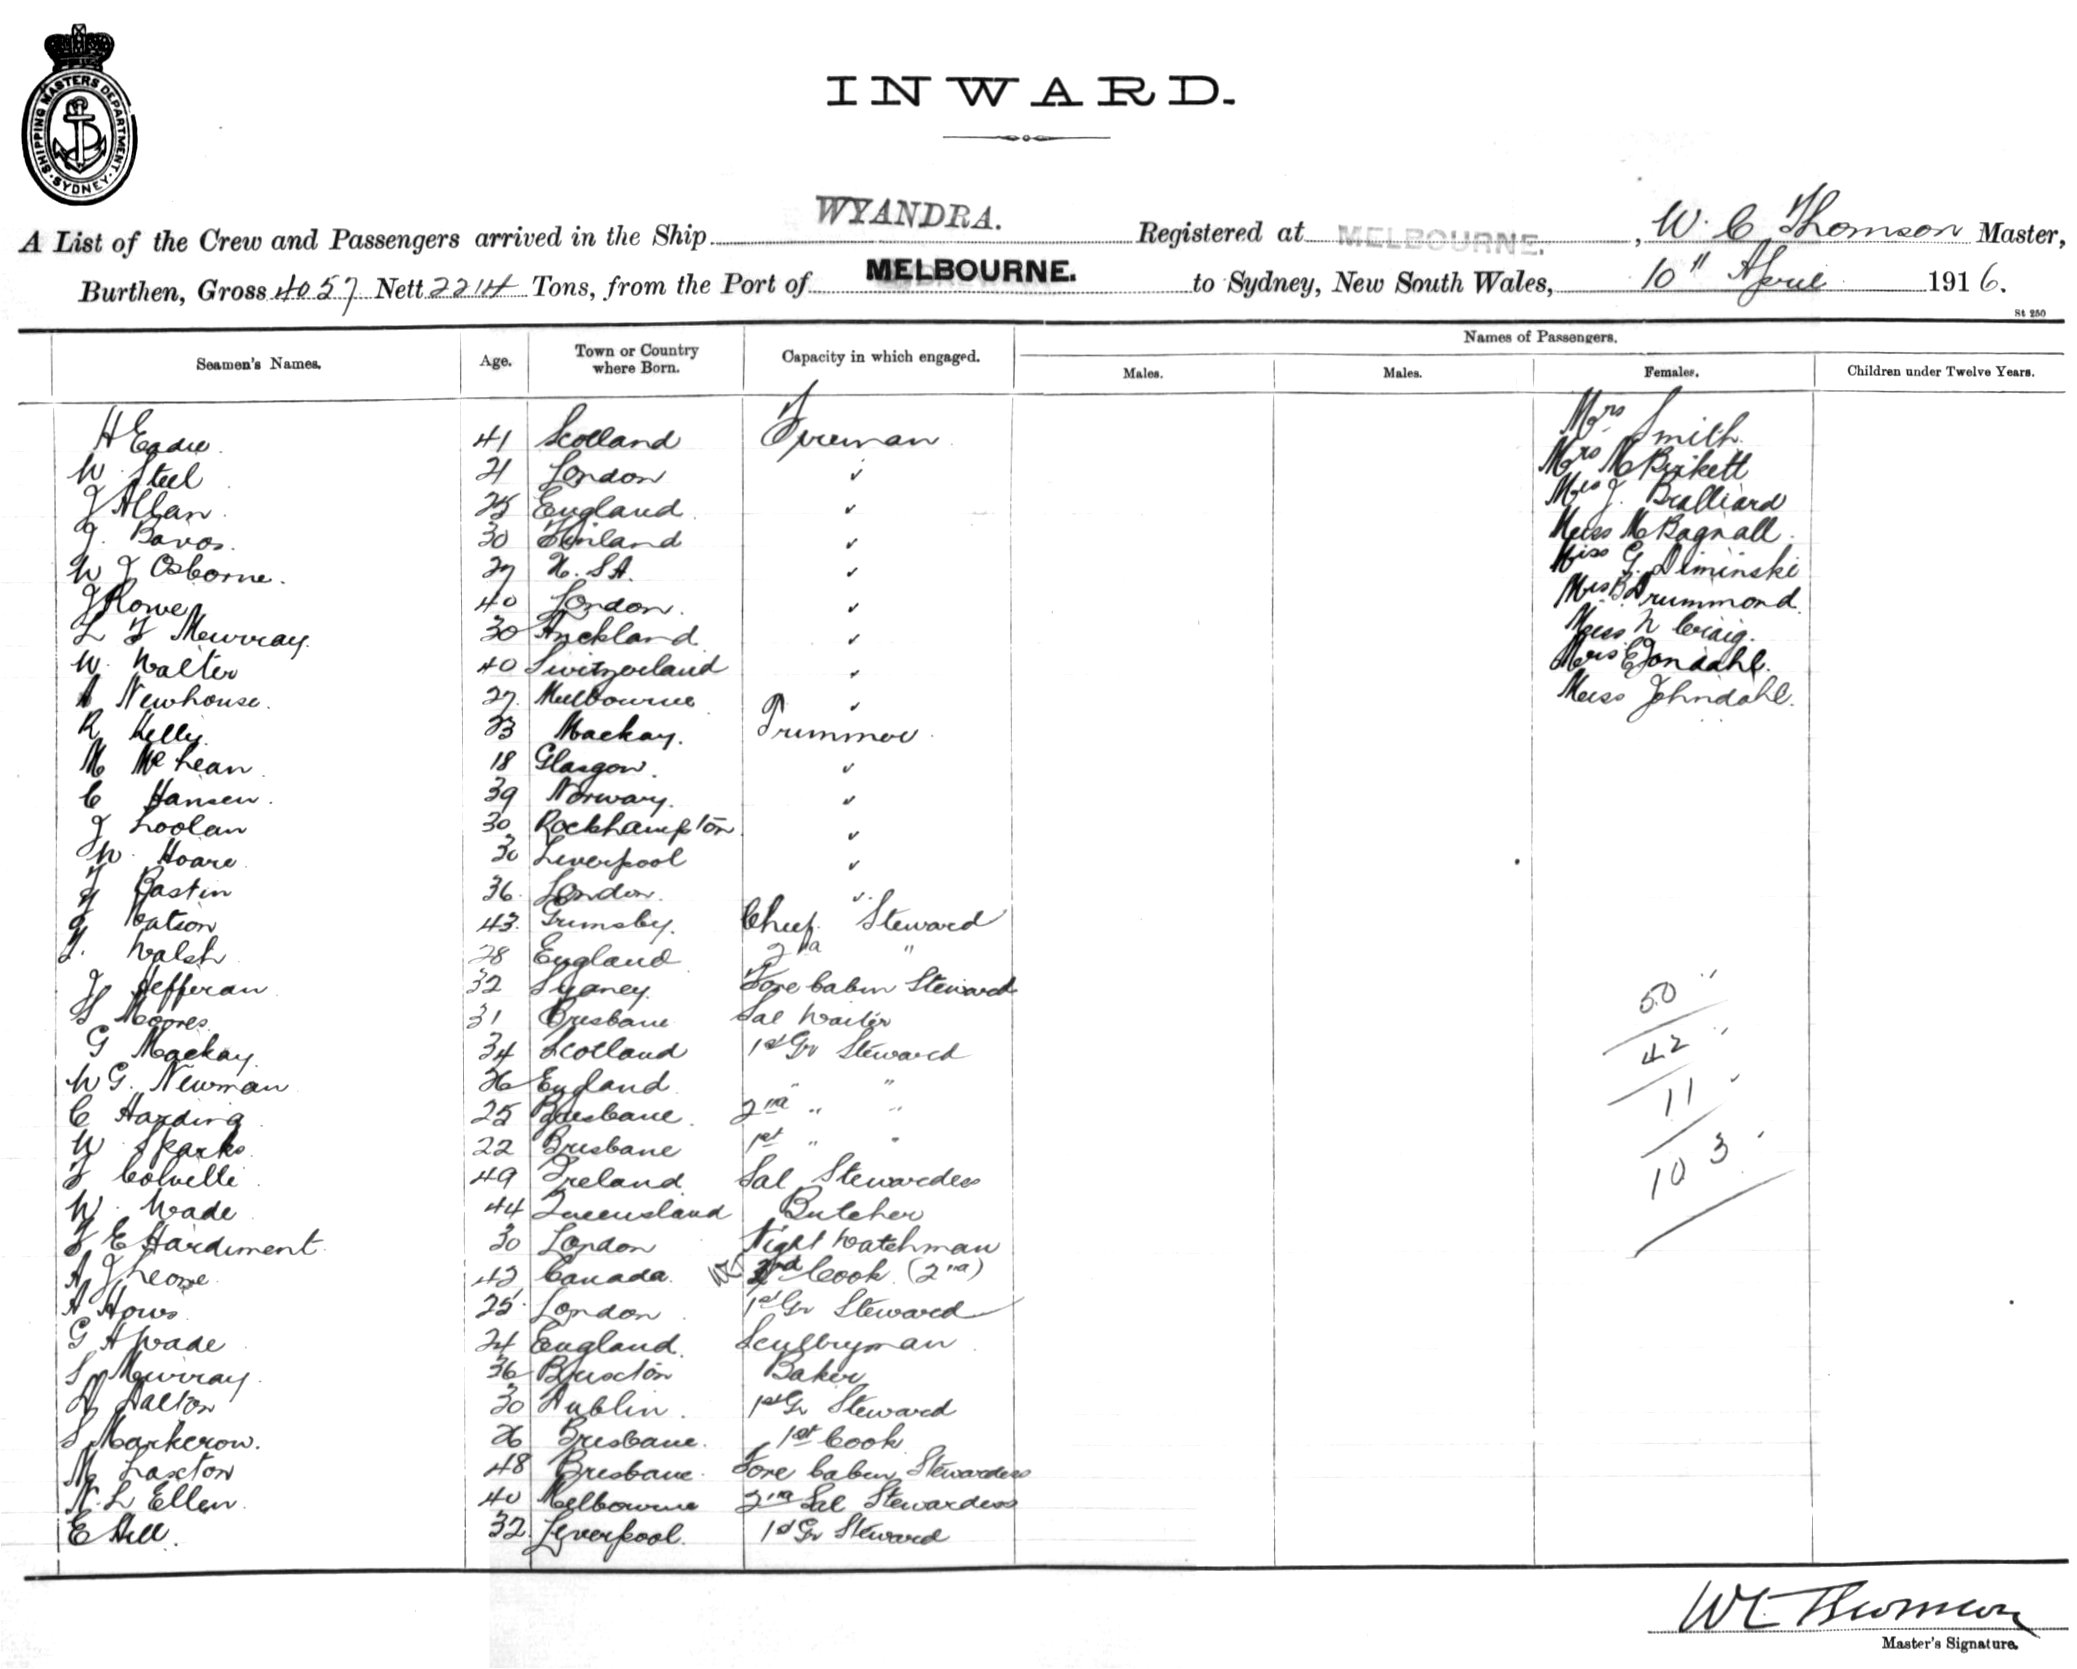 SHIPPING MASTERS DEPARTMENT · SYDNEY ·
INWARD.
A List of the Crew and Passengers arrived in the Ship WYANDRA. Registered at MELBOURNE. , W. C Thomson Master,
Burthen, Gross 4057 Nett 2214 Tons, from the Port of MELBOURNE. to Sydney, New South Wales, 10" April 1916.
St 250
Names of Passengers.
Seamen's Names. Age. Town or Country where Born. Capacity in which engaged. Males. Males. Females. Children under Twelve Years.
H Eadie 41 Scotland Fireman Mrs Smith
W Steel 21 London ✓ Mrs M Birkett
J Allan 25 England ✓ Mrs J. Bralliard
J. Bavos. 30 Finland ✓ Miss M Bagnall
W J Osborne. 27 U.S.A. ✓ Miss G. Diminski
J Rowe 40 London. ✓ Mrs B Drummond
L F Murray. 30 Auckland ✓ Miss N Craig.
W. Walter 40 Switzerland ✓ Mrs E Jondahl.
A Newhouse. 27. Melbourne ✓ Miss Johndahl.
R Kelly. 23 Mackay. Trimmer
M McLean 18 Glasgow. ✓
C Hansen. 39 Norway. ✓
J Loolan 30 Rockhampton ✓
W. Hoare 30 Liverpool ✓
F Bastin 36. London. ✓
G Watson 43. Grimsby. Chief Steward
T. Walsh 28 England 2nd "
J Hefferan 32 Sydney. Fore Cabin Steward
S Moores 31 Brisbane Sal Waiter
G Mackay. 34 Scotland 1st Gr Steward
W G. Newman 26 England " "
C Harding 25 Brisbane 2nd " "
W Sparks 22 Brisbane 1st " "
F Colvelli 49 Ireland Sal Stewardess
W. Wade 44 Queensland Butcher
F E Hardiment 30 London Night Watchman
A J Leone 42 Canada. Cook (2nd)
A Hows 25 London 1st Gr Steward
G A Wade 24 England. Scullryman
S Murray. 36 Buxton Baker
Dalton 30 Dublin. 1st Gr Steward
S Markerow. 26 Brisbane. 1st Cook
M Laxton 48 Brisbane. Fore Cabin Stewardess
N. L Ellen. 40 Melbourne 2nd Sal Stewardess
E Hill. 32. Liverpool. 1st Gr Steward
50
42
11
103
WC Thomson
Master's Signature.